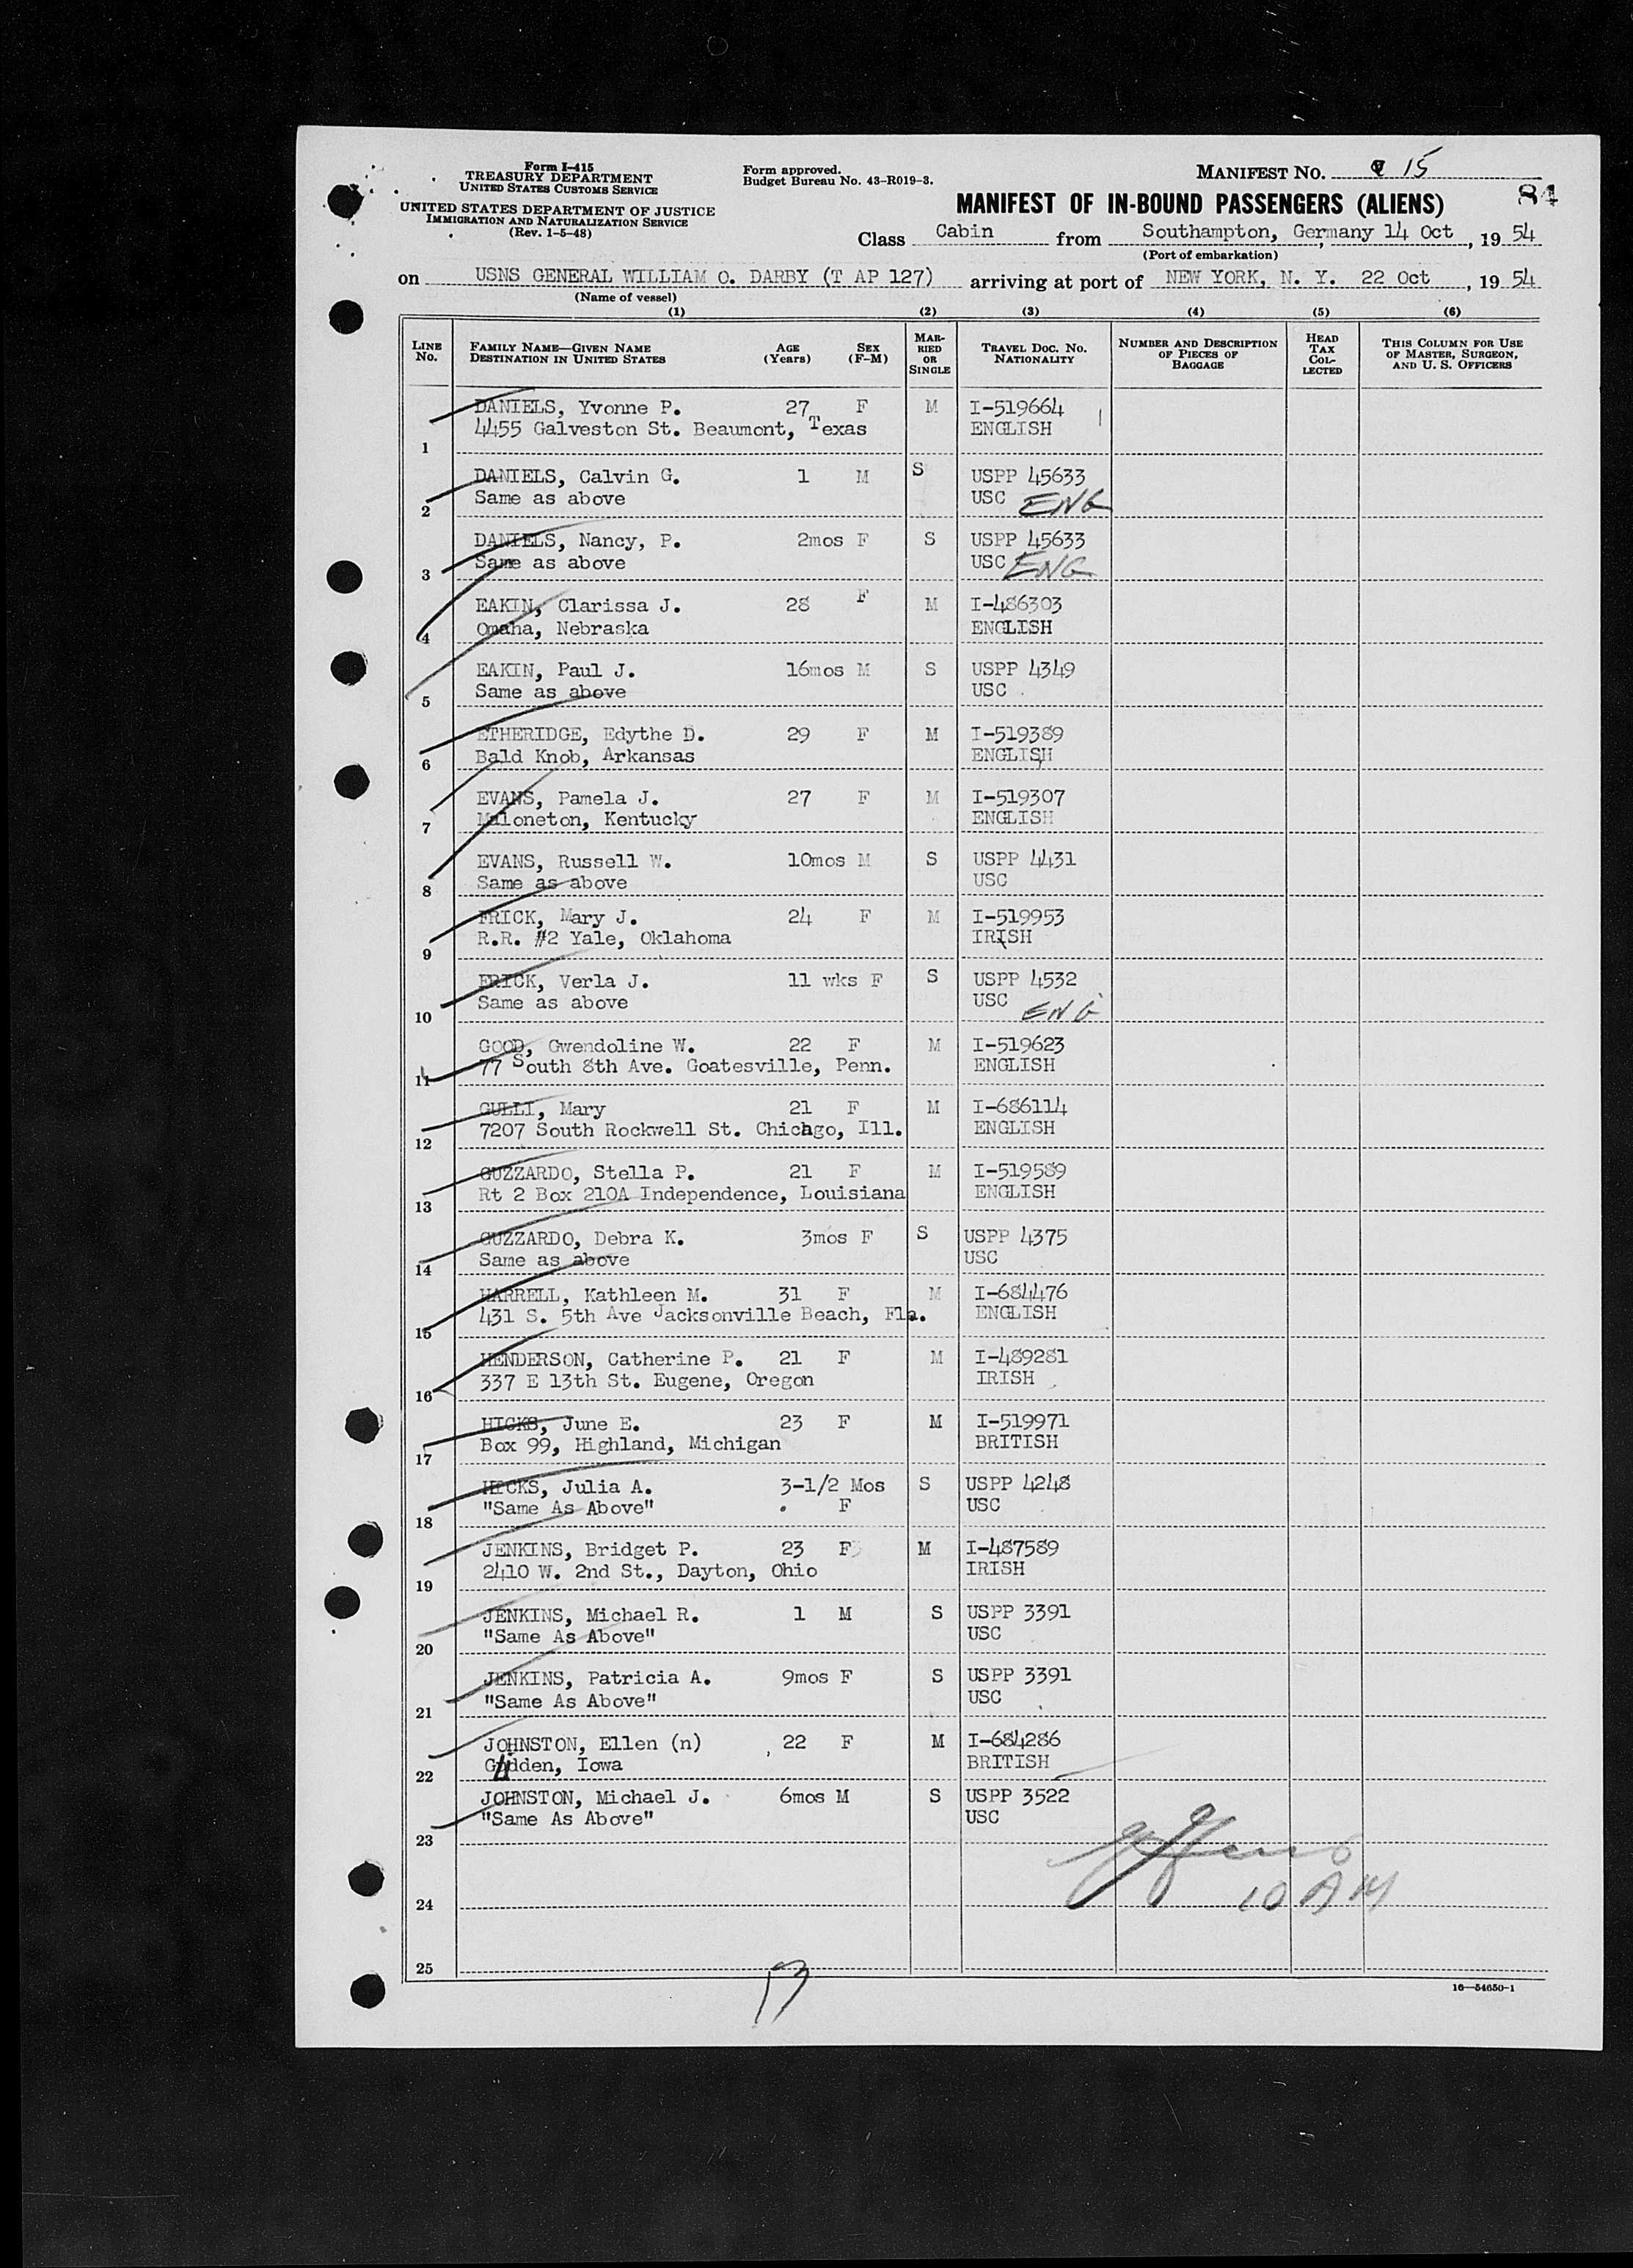 Form I-415
TREASURY DEPARTMENT
UNITED STATES CUSTOMS SERVICE
UNITED STATES DEPARTMENT OF JUSTICE
IMMIGRATION AND NATURALIZATION SERVICE
(Rev. 1-5-48)
Form approved.
Budget Bureau No. 43-R019-3.
MANIFEST NO. 15
84
MANIFEST OF IN-BOUND PASSENGERS (ALIENS)
Class Cabin from Southampton, Germany 14 Oct, 19 54
(Port of embarkation)
on USNS GENERAL WILLIAM O. DARBY (T AP 127) arriving at port of NEW YORK, N. Y. 22 Oct, 19 54
(Name of vessel)
(1) (2) (3) (4) (5) (6)
LINE No. FAMILY NAME—GIVEN NAME DESTINATION IN UNITED STATES AGE (Years) SEX (F-M) MARRIED OR SINGLE TRAVEL DOC. NO. NATIONALITY NUMBER AND DESCRIPTION OF PIECES OF BAGGAGE HEAD TAX COLLECTED THIS COLUMN FOR USE OF MASTER, SURGEON, AND U. S. OFFICERS
DANIELS, Yvonne P. 27 F M I-519664
1 4455 Galveston St. Beaumont, Texas ENGLISH
DANIELS, Calvin G. 1 M S USPP 45633
2 Same as above USC ENG
DANIELS, Nancy, P. 2mos F S USPP 45633
3 Same as above USC ENG
EAKIN, Clarissa J. 28 F M I-486303
4 Omaha, Nebraska ENGLISH
EAKIN, Paul J. 16mos M S USPP 4349
5 Same as above USC
ETHERIDGE, Edythe D. 29 F M I-519389
6 Bald Knob, Arkansas ENGLISH
EVANS, Pamela J. 27 F M I-519307
7 Maloneton, Kentucky ENGLISH
EVANS, Russell W. 10mos M S USPP 4431
8 Same as above USC
FRICK, Mary J. 24 F M I-519953
9 R.R. #2 Yale, Oklahoma IRISH
FRICK, Verla J. 11 wks F S USPP 4532
10 Same as above USC ENG
GOOD, Gwendoline W. 22 F M I-519623
11 77 South 8th Ave. Goatesville, Penn. ENGLISH
GULLI, Mary 21 F M I-686114
12 7207 South Rockwell St. Chicago, Ill. ENGLISH
GUZZARDO, Stella P. 21 F M I-519589
13 Rt 2 Box 210A Independence, Louisiana ENGLISH
GUZZARDO, Debra K. 3mos F S USPP 4375
14 Same as above USC
HARRELL, Kathleen M. 31 F M I-684476
15 431 S. 5th Ave Jacksonville Beach, Fla. ENGLISH
HENDERSON, Catherine P. 21 F M I-489281
16 337 E 13th St. Eugene, Oregon IRISH
HICKS, June E. 23 F M I-519971
17 Box 99, Highland, Michigan BRITISH
HICKS, Julia A. 3-1/2 Mos S USPP 4248
18 "Same As Above" F USC
JENKINS, Bridget P. 23 F M I-487589
19 2410 W. 2nd St., Dayton, Ohio IRISH
JENKINS, Michael R. 1 M S USPP 3391
20 "Same As Above" USC
JENKINS, Patricia A. 9mos F S USPP 3391
21 "Same As Above" USC
JOHNSTON, Ellen (n) 22 F M I-684286
22 Iowa BRITISH
JOHNSTON, Michael J. 6mos M S USPP 3522
23 "Same As Above" USC
10 AM
24
25
16—54650-1